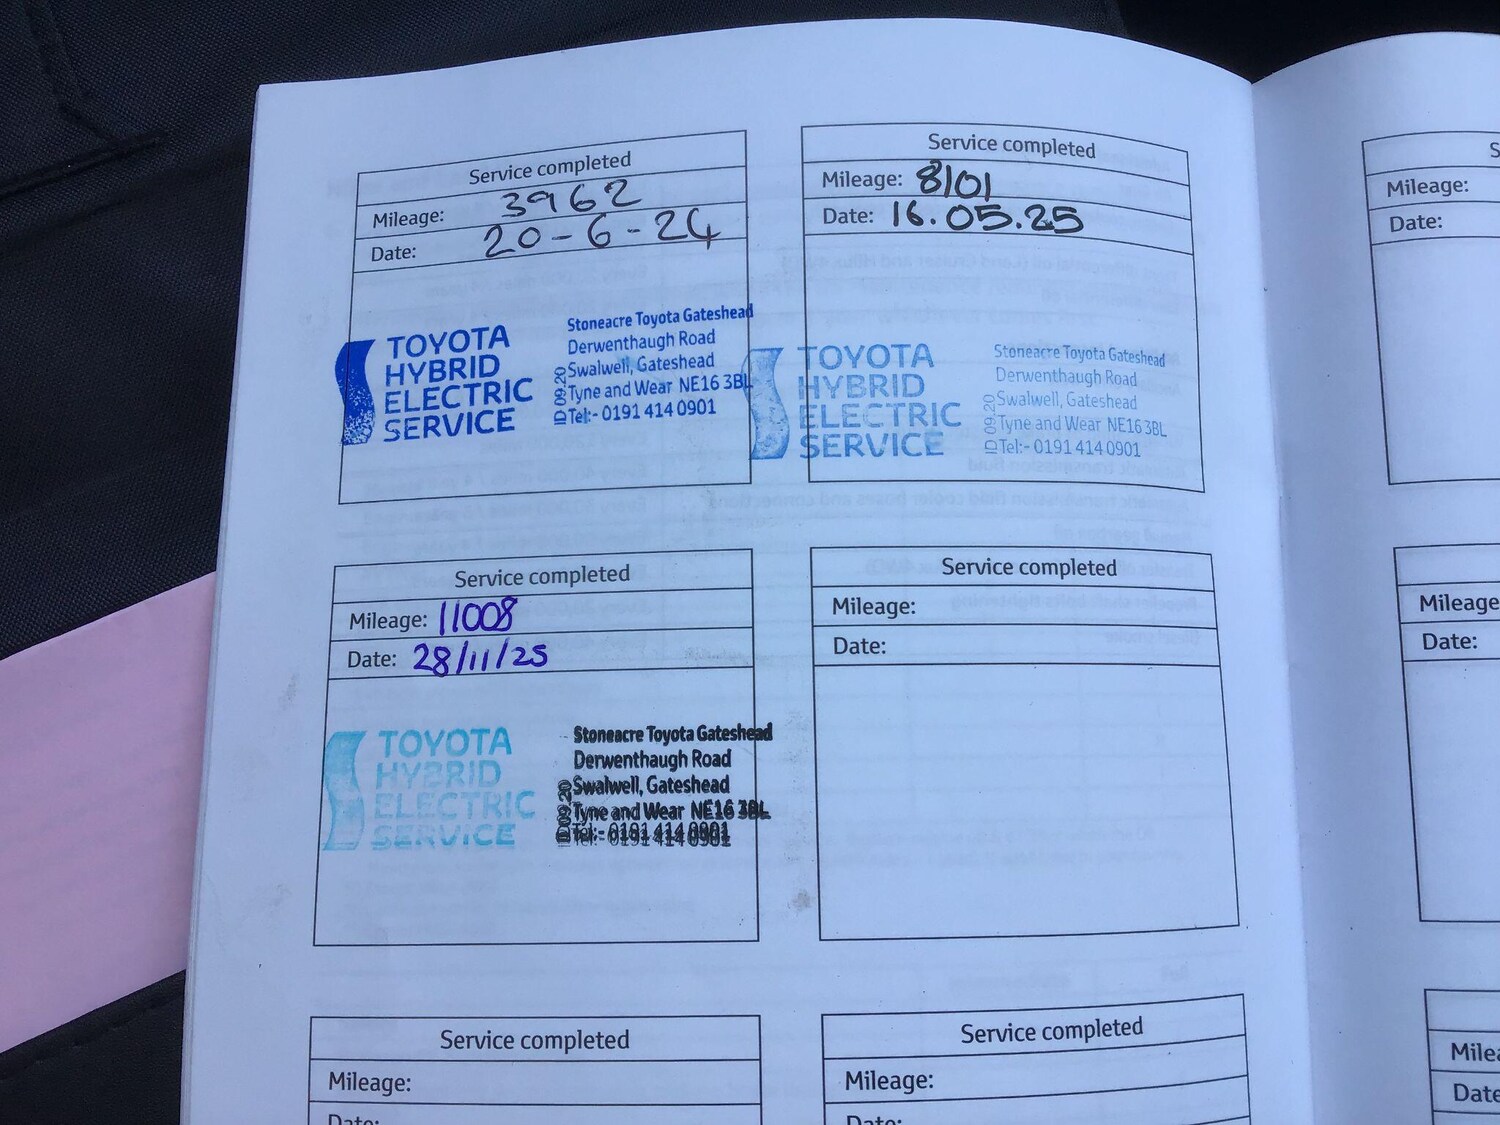 Service completed
Mileage: 3962
Date: 20-6-24
TOYOTA
HYBRID
ELECTRIC
SERVICE
Stoneacre Toyota Gateshead
Derwenthaugh Road
Swalwell, Gateshead
Tyne and Wear NE16 3BL
Tel:- 0191 414 0901
ID 09.20
Service completed
Mileage: 8101
Date: 16.05.25
TOYOTA
HYBRID
ELECTRIC
SERVICE
Stoneacre Toyota Gateshead
Derwenthaugh Road
Swalwell, Gateshead
Tyne and Wear NE16 3BL
Tel:- 0191 414 0901
ID 09.20
Service completed
Mileage: 11008
Date: 28/11/25
TOYOTA
HYBRID
ELECTRIC
SERVICE
Stoneacre Toyota Gateshead
Derwenthaugh Road
Swalwell, Gateshead
Tyne and Wear NE16 3BL
Tel:- 0191 414 0901
Service completed
Mileage:
Date:
Service completed
Mileage:
Date:
Service completed
Mileage:
Date:
Mileage:
Date:
Mileage
Date: